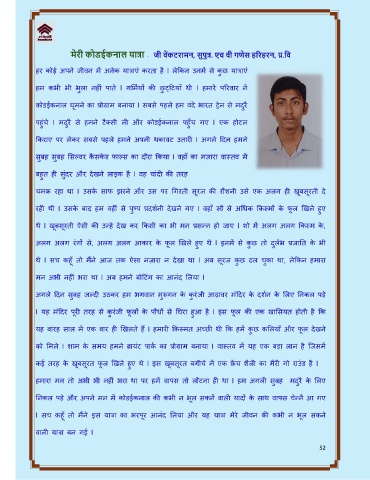 मेरी कोडईकनाल यात्रा - जी वेंकटरामन, सुपुत्र. एच वी गणेस हरिहरन, प्र.वि
हर कोई अपने जीवन में अनेक यात्राएं करता है । लेकिन उनमें से कुछ यात्राएं
हम कभी भी भुला नहीं पाते । गर्मियों की छुट्टियाँ थी । हमारे परिवार ने
कोडईकनाल घूमने का प्रोग्राम बनाया । सबसे पहले हम वंदे भारत ट्रेन से मदुरै
पहुंचे । मदुरै से हमने टैक्सी ली और कोडईकनाल पहुँच गए । एक होटल
किराए पर लेकर सबसे पहले हमने अपनी थकावट उतारी । अगले दिन हमने
सुबह सुबह सिल्वर कैसकेड फाल्स का दौरा किया । वहाँ का नजारा वास्तव में
बहुत ही सुंदर और देखने लाइक है । वह चांदी की तरह
चमक रहा था । उसके साफ झरने और उस पर गिरती सूरज की रौशनी उसे एक अलग ही खूबसूरती दे
रही थी । उसके बाद हम वहीं से पुष्प प्रदर्शनी देखने गए । वहाँ सौ से अधिक किस्मों के फूल खिले हुए
थे । खूबसूरती ऐसी की उन्हें देख कर किसी का भी मन प्रसन्न हो जाए । शो में अलग अलग किस्म के,
अलग अलग रंगों से, अलग अलग आकार के फूल खिले हुए थे । इनमें से कुछ तो दुर्लभ प्रजाति के भी
थे । सच कहूँ तो मैंने आज तक ऐसा नज़ारा न देखा था । अब सूरज कुछ ढल चुका था, लेकिन हमारा
मन अभी नहीं भरा था । अब हमने बोटिंग का आनंद लिया ।
अगले दिन सुबह जल्दी उठकर हम भगवान मुरुगन के कुरंजी आंढावर मंदिर के दर्शन के लिए निकल पड़े
। यह मंदिर पूरी तरह से कुरंजी फूलों के पौधों से घिरा हुआ है । इस फूल की एक खासियत होती है कि
यह बारह साल में एक बार ही खिलते हैं । हमारी किस्मत अच्छी थी कि हमें कुछ कलियाँ और फूल देखने
को मिले । शाम के समय हमने ब्रायंट पार्क का प्रोग्राम बनाया । वास्तव में यह एक बड़ा लान है जिसमें
कई तरह के खूबसूरत फूल खिले हुए थे । इस खूबसूरत बगीचे में एक फ्रेंच शैली का मैरी गो राउंड है ।
हमारा मन तो अभी भी नहीं भरा था पर हमें वापस तो लौटना ही था । हम अगली सुबह मदुरै के लिए
निकल पड़े और अपने मन में कोडईकनाल की कभी न भूल सकने वाली यादों के साथ वापस चेन्नै आ गए
। सच कहूँ तो मैंने इस यात्रा का भरपूर आनंद लिया और यह यात्रा मेरे जीवन की कभी न भूल सकने
वाली यात्रा बन गई ।
52